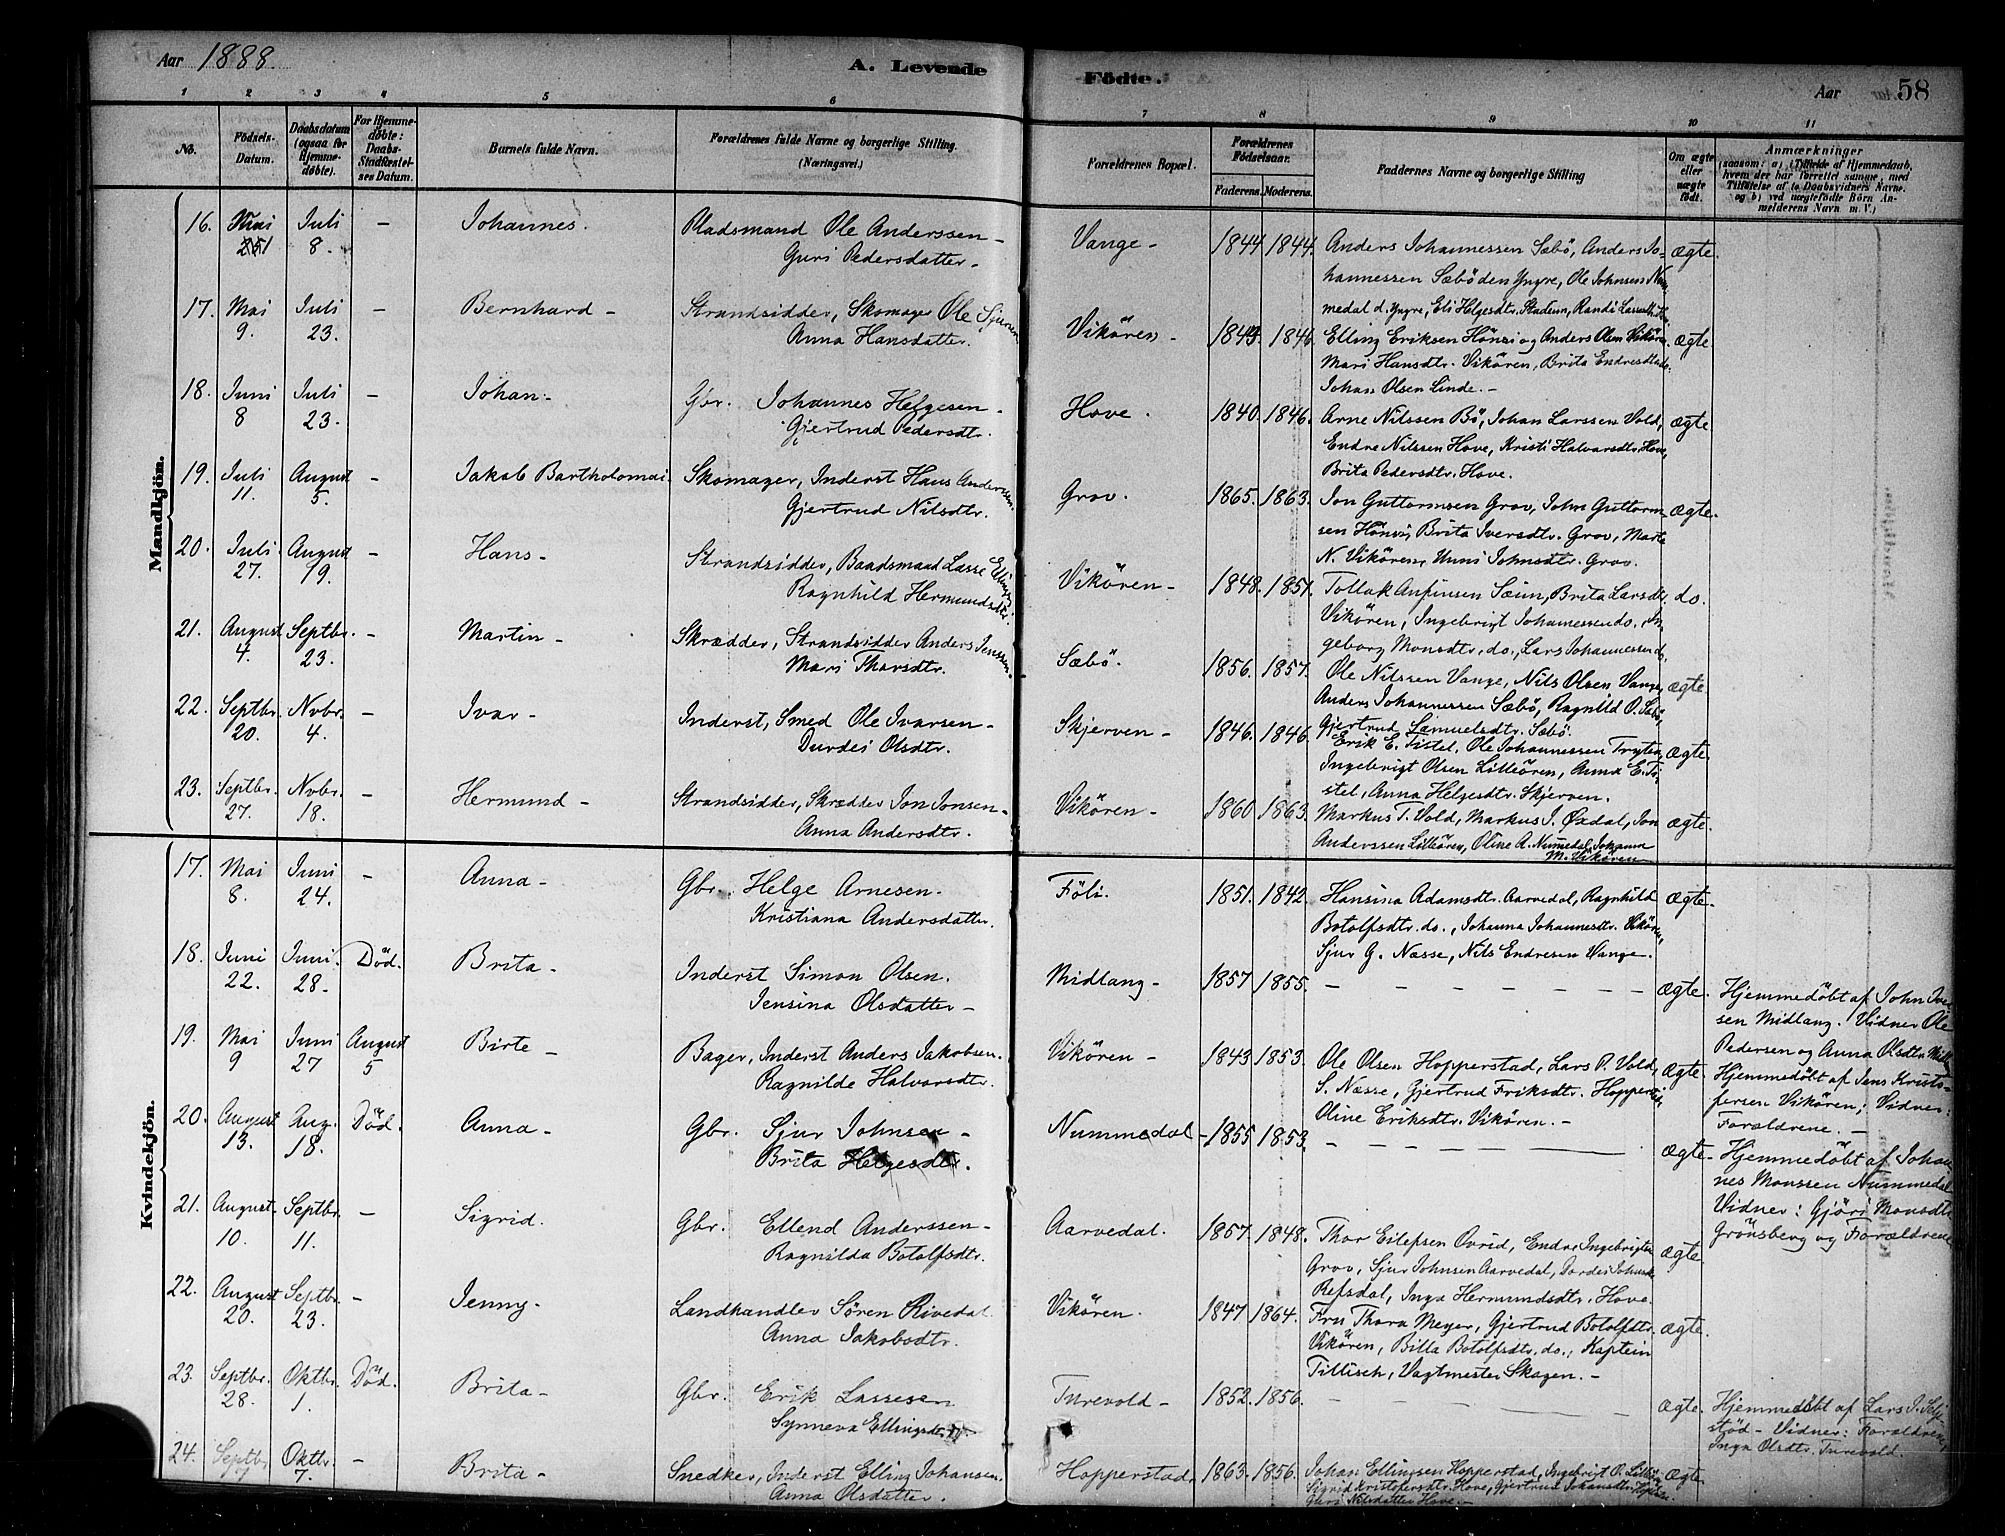 Aar 1888.
A. Levende
Födte.
Aar
58
1 2 3 4 5 6 7 8 9 10 11
No.
Födsels-
Datum.
Daabsdatum
(ogsaa for
Hjemme-
döbte).
For Hjemme-
döbte:
Daabs-
Stadfæstel-
ses Datum.
Barnets fulde Navn.
Forældrenes fulde Navne og borgerlige Stilling.
(Næringsvei.)
Forældrenes Bopæl.
Forældrenes
Födselsaar.
Faderens.
Moderens.
Faddernes Navne og borgerlige Stilling
Om ægte
eller
uægte
födt.
Anmærkninger
(saasom: a) i Tilfælde af Hjemmedaab,
hvem der har forrettet samme, med
Tilföielse af to Daabsvidners Navne.
og b) ved uægtefödte Börn An-
melderens Navn m. V.)
Mandkjön.
16. Mai Juli 8. - Johannes. Pladsmand Ole Anderssen -
Guri Pedersdatter -
Vange - 1844 1844. Anders Johannessen Sæbö, Anders Jo- ægte.
hannessen Sæbö den Yngre, Ole Johnsen Num
medal d. Yngre, Eli Helgesdtr. Stadeim, Randi
17. Mai 9. Juli 23. - Bernhard - Strandsidder, Skomager Ole Sjursen
Anna Hansdatter.
Vikören - 1846 Elling Eriksen Hönsi og Anders Olsen Vikören. ægte
Mari Hansdtr. Vikören, Brita Endresdtr. do.
Johan Olsen Linde. -
18. Juni 8 Juli 23. - Johan - Gbr. Johannes Helgesen -
Gjertrud Pedersdtr.
Hove. 1840. 1846. Arne Nilssen Bö, Johan Larssen Vold, ægte
Endre Nilssen Hove, Kristi Halvarsdtr. Hove,
Brita Pedersdtr. Hove.
19. Juli 11. August 5. - Jakob Bartholomai. Skomager, Inderst Hans Anderssen.
Gjertrud Nilsdtr.
Grov. 1865. 1863. Jon Guttormsen Grov, John Guttorm- ægte.
sen Hönsi, Brita Iversdtr. Grov, Marte
N. Vikören, Unni Johnsdtr. Grov.
20. Juli 27. August 19. - Hans - Strandsidder, Baadsmand Lasse Ellingsen
Ragnhild Hermundsdtr.
Vikören - 1848. 1851. Tollak Anfinsen Sæim, Brita Larsdtr. do.
Vikören, Ingebrigt Johannessen do., In
geborg Monsdtr. do., Lars Johannessen do.
21. August 4. Septbr. 23. - Martin - Skrædder, Strandsidder Anders Jenssen.
Mari Tharsdtr.
Sæbö. 1856. 1857. Ole Nilssen Vange, Nils Olsen Vange, ægte.
Anders Johannessen Sæbö, Ragnild O. Sæbö,
Gjertrud Samuelsdtr. Sæbö.
22. Septbr. 20. Novbr. 4. - Ivar - Inderst, Smed Ole Ivarsen -
Durdei Olsdtr.
Skjerven - 1846. 1846. Erik E. Tistel, Ole Johannessen Tryten, ægte
Ingebrigt Olsen Lilleören, Anna E. Ti-
stel, Anna Helgesdtr. Skjerven.
23. Septbr. 27. Novbr. 18. - Hermund - Strandsidder, Skrædder Jon Jonsen -
Anna Andersdtr.
Vikören - 1860 1863. Markus T. Vold, Markus J. Öxdal, Jon ægte.
Anderssen Lilleören, Oline A. Numedal, Johanna
M. Vikören
Kvindekjön.
17. Mai 8. Juni 24. - Anna - Gbr. Helge Arnesen.
Kristiana Andersdatter.
Föli. 1851. 1842. Hansina Adamsdtr. Aarvedal, Ragnhild ægte.
Botolfsdtr. do., Johanna Johannesdtr. Vikören,
Sjur G. Næsse, Nils Endresen Vange.
18. Juni 22. Juni 28. Död. Brita - Inderst Simon Olsen.
Jensina Olsdatter -
Midlang - 1857 1855. - - - - - - - ægte. Hjemmedöbt af John Iver
sen Midlang. Vidner Ole
Pedersen og Anna Olsdtr. Midl.
19. Mai 9 Juni 27 August 5 Birte - Bager, Inderst Anders Jakobsen.
Ragnilde Halvarsdtr.
Vikören - 1843 1853. Ole Olsen Hopperstad, Lars P. Vold, ægte. Hjemmedöbt af Jens Kristo-
S. Næsse, Gjertrud Eriksdtr. Hopperstad, fersen Vikören; Vidner:
Oline Eriksdtr. Vikören. - Forældrene. -
20. August 13. Aug. 18. Död. Anna - Gbr. Sjur Johnsen -
Brita Helgesdtr.
Nummedal - 1855 1853. - - - - - ægte - Hjemmedöbt af Johan
nes Monssen Nummedal
Vidner: Gjöri Monsdtr.
Grönsberg og Forældrene
21. August 10. Septbr. 11. - Sigrid. Gbr. Ellend Anderssen -
Ragnilda Botolfsdtr.
Aarvedal. 1857. 1848. Thor Eilefsen Ovrid, Endre Ingebrigtsen ægte
Grov, Sjur Johnsen Aarvedal, Dordei Johnsdtr.
Refsdal, Inga Hermundsdtr. Hove.
22. August 20. Septbr. 23. - Jenny - Landhandler Sören Rivedal
Anna Jakobsdtr.
Vikören. 1847 1864. Fru Thora Meyer, Gjertrud Botolfsdtr. ægte.
Vikören, Bitla Botolfsdtr. do., Kaptein
Tillisch, Vagtmester Skagen. -
23. Septbr. 28. Oktbr. 1. Död. Brita - Gbr. Erik Lassesen
Synneva Ellingsdtr.
Turevold - 1852. 1856. - - - - ægte. Hjemmedöbt af Lars J.
Vidner: Forældrene,
Inga Olsdtr. Turevold.
24. Septbr. 7 Oktbr. 7. - Brita - Snedker, Inderst Elling Johansen.
Anna Olsdatter.
Hopperstad. 1863. 1856. Johan Ellingsen Hopperstad, Ingebrigt O. Lilleören ægte
Sigrid Kristofersdtr. Hove, Gjertrud Johansdtr. Hopperst.
Guri Nilsdatter Hove -